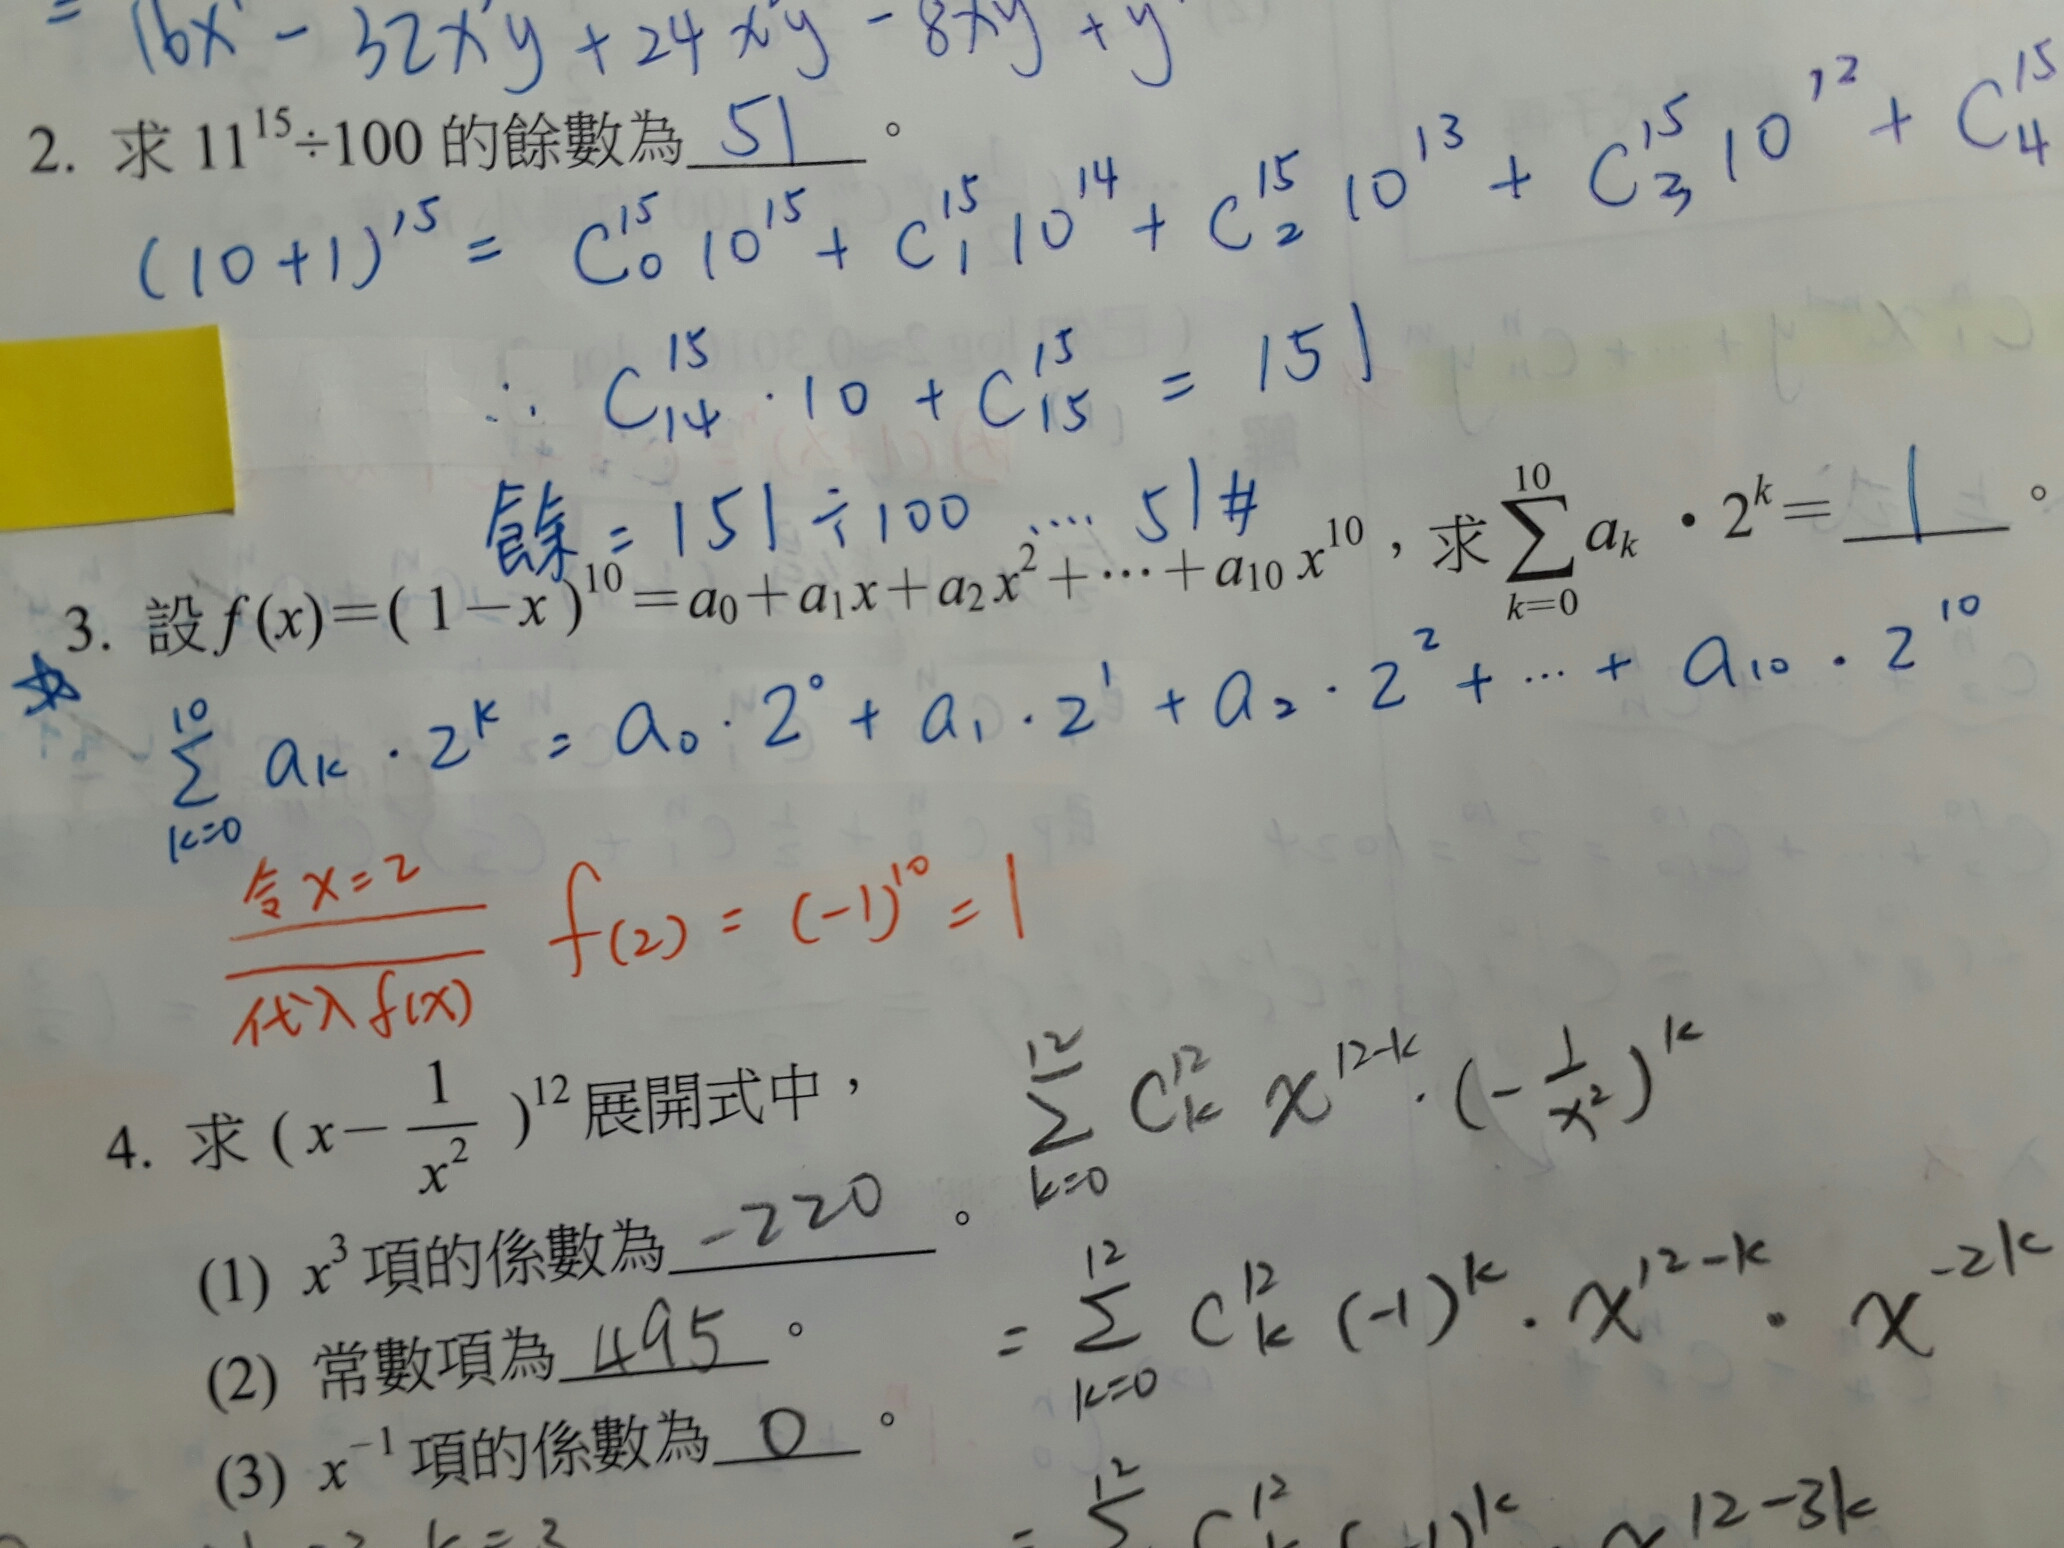 = 16x⁴ - 32x³y + 24x²y² - 8xy³ + y⁴
2. 求 11¹⁵÷100 的餘數為 51 。
(10+1)¹⁵ = C₀¹⁵ 10¹⁵ + C₁¹⁵ 10¹⁴ + C₂¹⁵ 10¹³ + C₃¹⁵ 10¹² + C₄¹⁵
∴ C₁₄¹⁵ · 10 + C₁₅¹⁵ = 151
餘 = 151 ÷ 100 .... 51 #
3. 設 f(x)=(1－x)¹⁰=a₀+a₁x+a₂x²+⋯+a₁₀x¹⁰，求 ∑_{k=0}^{10} aₖ • 2ᵏ = 1 。
∑_{k=0}^{10} aₖ · 2ᵏ = a₀ · 2⁰ + a₁ · 2¹ + a₂ · 2² + ⋯ + a₁₀ · 2¹⁰
令 x = 2
代入 f(x)
f(2) = (-1)¹⁰ = 1
4. 求 (x－1/x²)¹² 展開式中，
∑_{k=0}^{12} Cₖ¹² x^{12-k} · (-1/x²)ᵏ
(1) x³ 項的係數為 -220 。
= ∑_{k=0}^{12} Cₖ¹² (-1)ᵏ · x^{12-k} · x^{-2k}
(2) 常數項為 495 。
(3) x⁻¹ 項的係數為 0 。
= ∑^{12} Cₖ¹² (-1)ᵏ · x^{12-3k}
k = 3